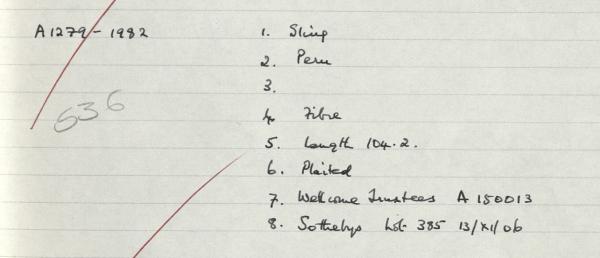 A1279-1982
1. Sling
2. Peru
3.
4. Fibre
536
5. Length 104.2.
6. Plaited
7. Wellcome Trustees A 150013
8. Sothebys Lot 385 13/XI/06